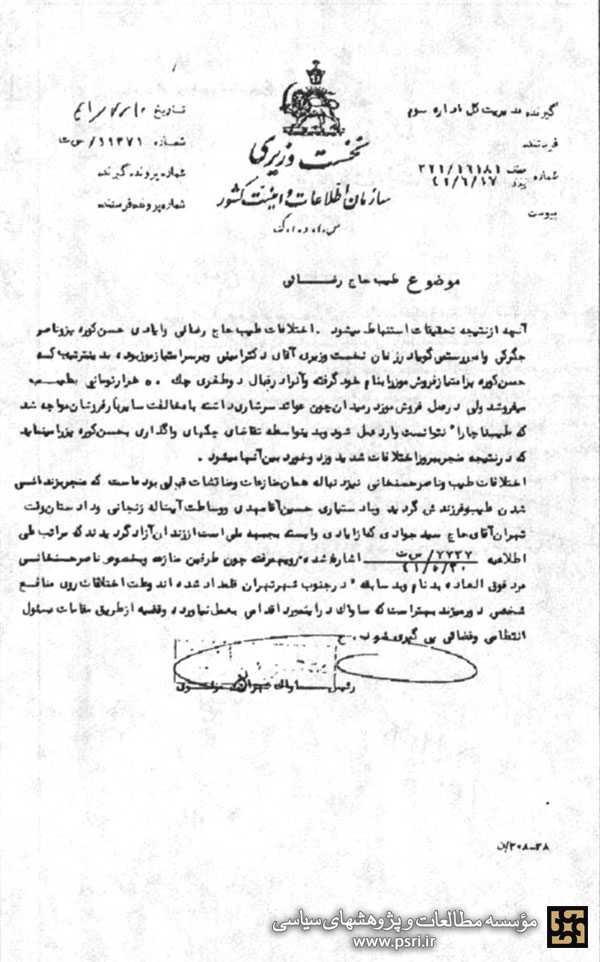 نخست وزیری
سازمان اطلاعات و امنیت کشور
س.ا.و.ا.ک
گیرنده مدیریت کل اداره سوم
فرستنده
شماره ۳۲۱/۱۶۱۸۱
۴۱/۶/۱۷
پیوست
تاریخ
شماره ۱۱۳۷۱/س ت
شماره پرونده گیرنده
شماره پرونده فرستنده
موضوع طیب حاج رضائی
آنچه از نتیجه تحقیقات استنباط میشود. اختلافات طیب حاج رضائی و ایادی حسن کوره پز و ناصر
جگرکی و امیر رستمی گویا در زمان نخست وزیری آقای دکتر امینی و بر سر امتیاز موز بوده، بدینترتیب که
حسن کوره پز امتیاز فروش موز را بنام خود گرفته و آنرا در قبال دو طغری چک ۵۰ هزار تومانی بطیب
میفروشد ولی در عمل فروش موز در میدان چون عوائد سرشاری داشته با مخالفت سایر بارفروشان مواجه شده
که طیب ناچارا" نتوانست وارد عمل شود و بدینواسطه تقاضای چکهای واگذاری بحسن کوره پز را مینماید
که در نتیجه منجر ببروز اختلافات شدید و زد و خورد بین آنها میشود.
اختلافات طیب و ناصر حسنخانی نیز دنباله همان منازعات و مناقشات قبلی بوده است که منجر بزندانی
شدن طیب و فرزندش گردید و با دستیاری حسین آقا مهدی و وساطت آیت اله زنجانی و دادستان وقت
تهران آقای حاج سید جوادی که از ایادی وابسته بجبهه ملی است از زندان آزاد گردیدند که مراتب طی
اطلاعیه ۷۷۳۷/س ت
۴۱/۵/۳۰ اشاره شده. رویهمرفته چون طرفین منازعه و بخصوص ناصر حسنخانی
مرد فوق العاده بدنام و بد سابقه در جنوب شهر تهران قلمداد شده اند و علت اختلافات روی منافع
شخصی دور میزند بهتر است که ساواک در اینمورد اقدامی بعمل نیاورده و قضیه از طریق مقامات مسئول
انتظامی و قضائی پی گیری شود. ح
رئیس ساواک تهران مولوی
۲۰۸-۲۸
مؤسسه مطالعات و پژوهشهای سیاسی
www.psri.ir